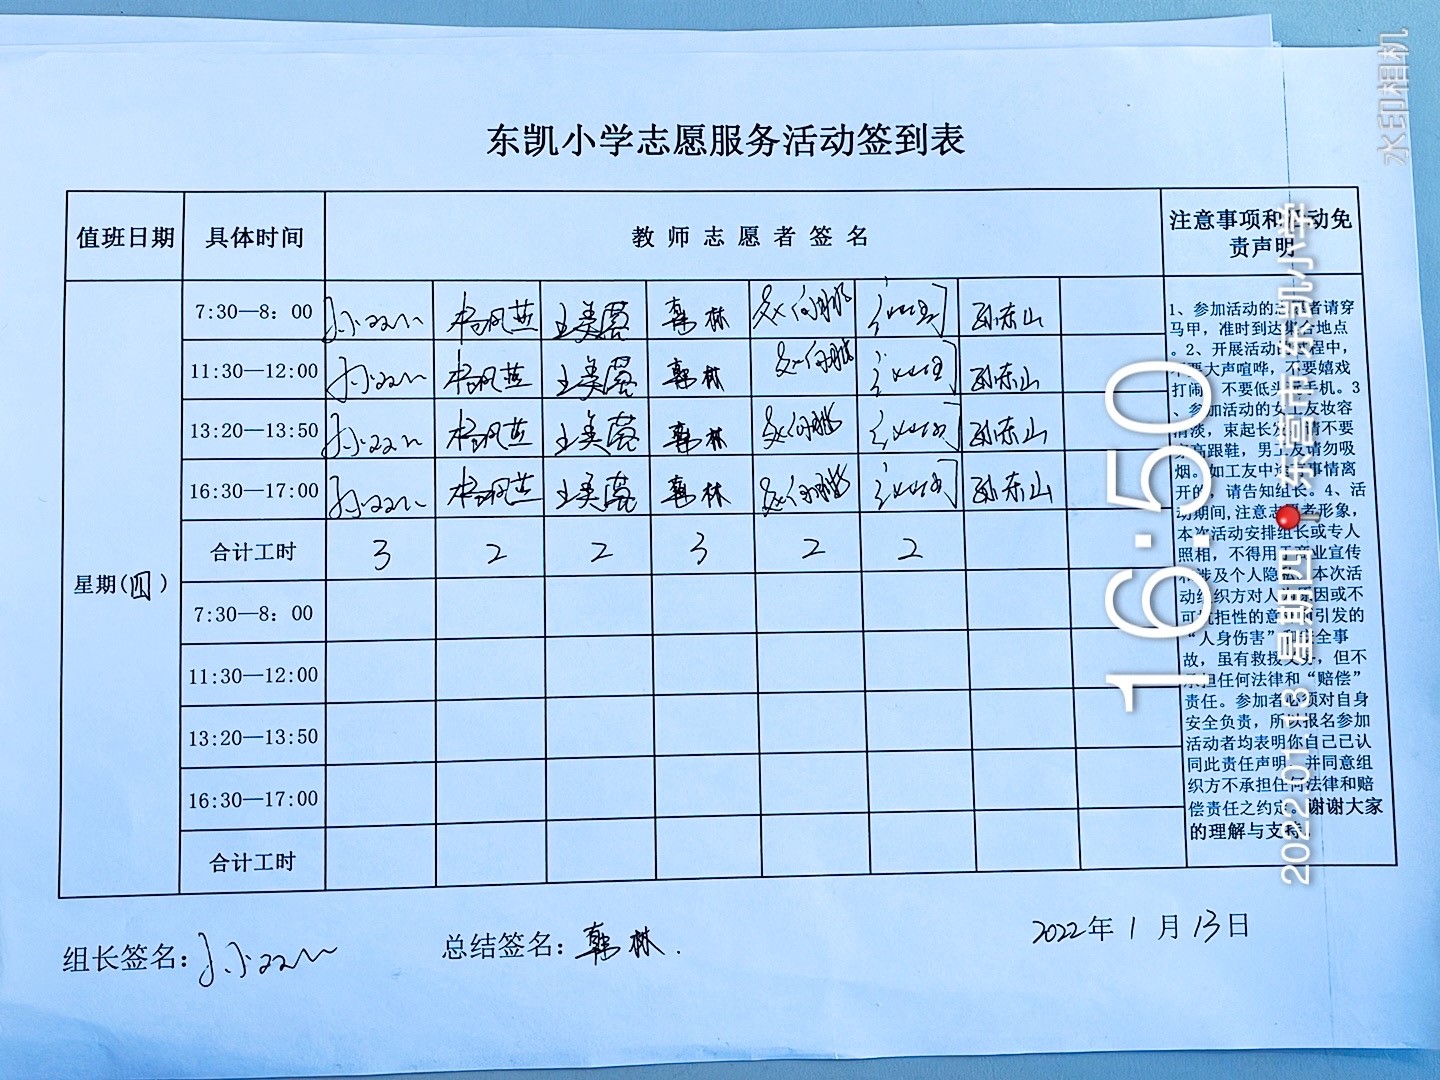 东凯小学志愿服务活动签到表
值班日期 具体时间 教师志愿者签名 注意事项和活动免
责声明
7:30—8:00 韩林 孙东山
11:30—12:00 韩林 孙东山
13:20—13:50 韩林 孙东山
16:30—17:00 韩林 孙东山
合计工时 3 2 2 3 2 2
星期(四)
7:30—8:00
11:30—12:00
13:20—13:50
16:30—17:00
合计工时
1、参加活动的 者请穿
马甲，准时到达集合地点
。2、开展活动的过程中，
不要大声喧哗，不要嬉戏
打闹，不要低头 手机。3
、参加活动的女工友妆容
清淡，束起长发，请不要
穿高跟鞋，男工友请勿吸
烟。如工友中途 事情离
开的，请告知组长。4、活
动期间,注意志愿者形象，
本次活动安排组长或专人
照相，不得用于商业宣传
和涉及个人隐私。本次活
动组织方对人为原因或不
可抗拒性的意外 引发的
“人身伤害” 安全事
故，虽有救援义务，但不
承担任何法律和“赔偿”
责任。参加者必须对自身
安全负责，所以报名参加
活动者均表明你自己已认
同此责任声明，并同意组
织方不承担任何法律和赔
偿责任之约定。谢谢大家
的理解与支持。
组长签名： 总结签名：韩林. 2022年1月13日
水印相机
16:50
2022.01.13 星期四 东莞市·东凯小学